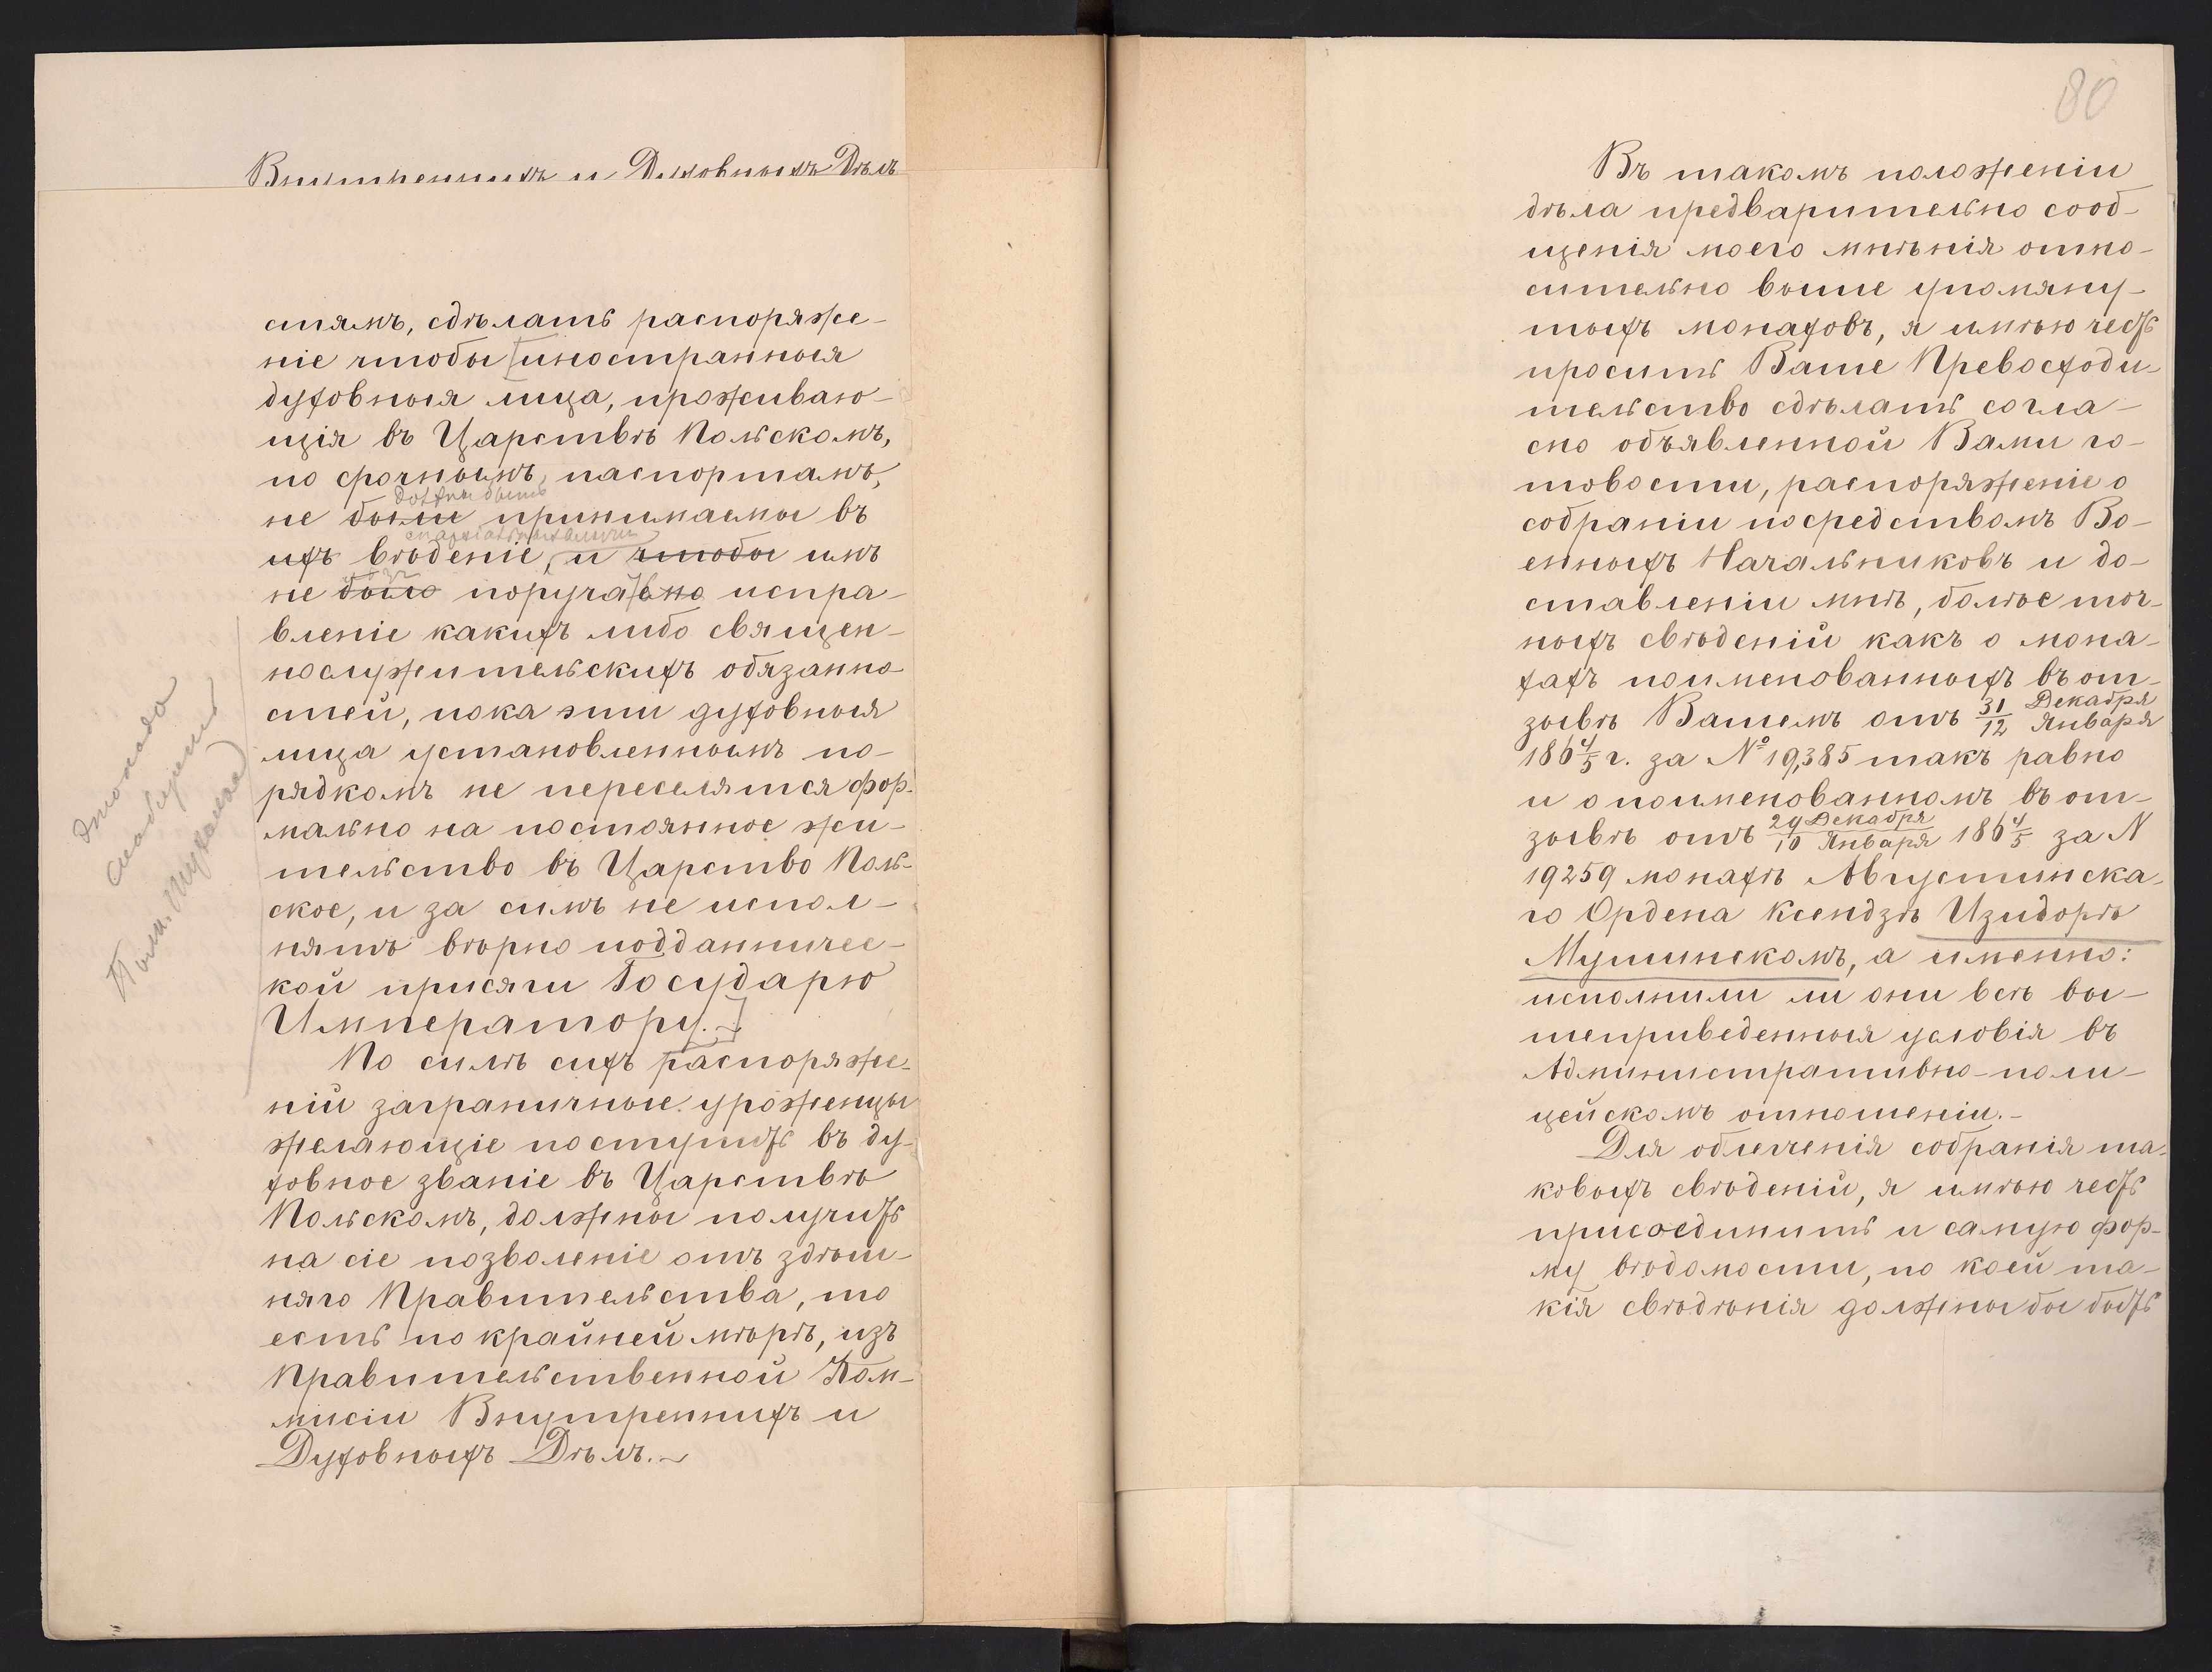 Внутреннихъ и Духовныхъ Дѣлъ
стямъ, сдѣлать распоряже-
ніе чтобы [иностранныя
духовныя лица, прожíваю-
щія въ Царствѣ Польскомъ,
по срочнымъ, паспортамъ,
должны быть
не были принимаемы въ
ихъ вѣденіе, и чтобы имъ
не было поручаемо испра-
вленіе какихъ либо священ-
нослужительскихъ обязанно-
стей, пока эти духовныя
лица установленнымъ по-
рядкомъ не переселятся фор-
мально на постоянное жи-
тельство въ Царство Поль-
ское, и за симъ не испол-
нятъ вѣрно подданничес-
кой присяги Государю
Императору.]
По силѣ сихъ распоряже-
ній заграничные урожденцы
желающіе поступить въ ду-
ховное званіе въ Царствѣ
Польскомъ, должны получить
на сіе позволеніе отъ здѣш-
няго Правительства, то
есть по крайней мѣрѣ, изъ
Правительственной Ком-
мисіи Внутреннихъ и
Духовныхъ Дѣлъ.
80
Въ такомъ положеніи
дѣла предварительно сооб-
щенія моего мнѣнія отно-
сительно выше упомяну-
тыхъ монаховъ, я имѣю честь
просить Ваше Превосходи-
тельство сдѣлать согла-
сно объявленной Вами го-
товости, распоряженіе о
собраніи посредствомъ Во-
енныхъ Начальниковъ и до-
ставленіи мнѣ, болѣе точ-
ныхъ свѣденій какъ о мона-
хахъ поименованныхъ въ от-
зывѣ Вашемъ отъ 31 Декабря/12 Января
1864/5 г. за № 19,385 такъ равно
и о поименованномъ въ от-
зывѣ отъ 29 Декабря/10 Января 1864/5 за N
19259 монахѣ Августинска-
го Ордена Ксендзѣ Изидорѣ
Мушинскомъ, а именно:
исполнили ли они всѣ вы-
шеприведенныя условія въ
Административно-поли-
цейскомъ отношеніи.-
Для облегченія собранія та-
ковыхъ свѣденій, я имѣю честь
присоединить и самую фор-
му вѣдомости, по коей та-
кія свѣдѣнія должны бы быть